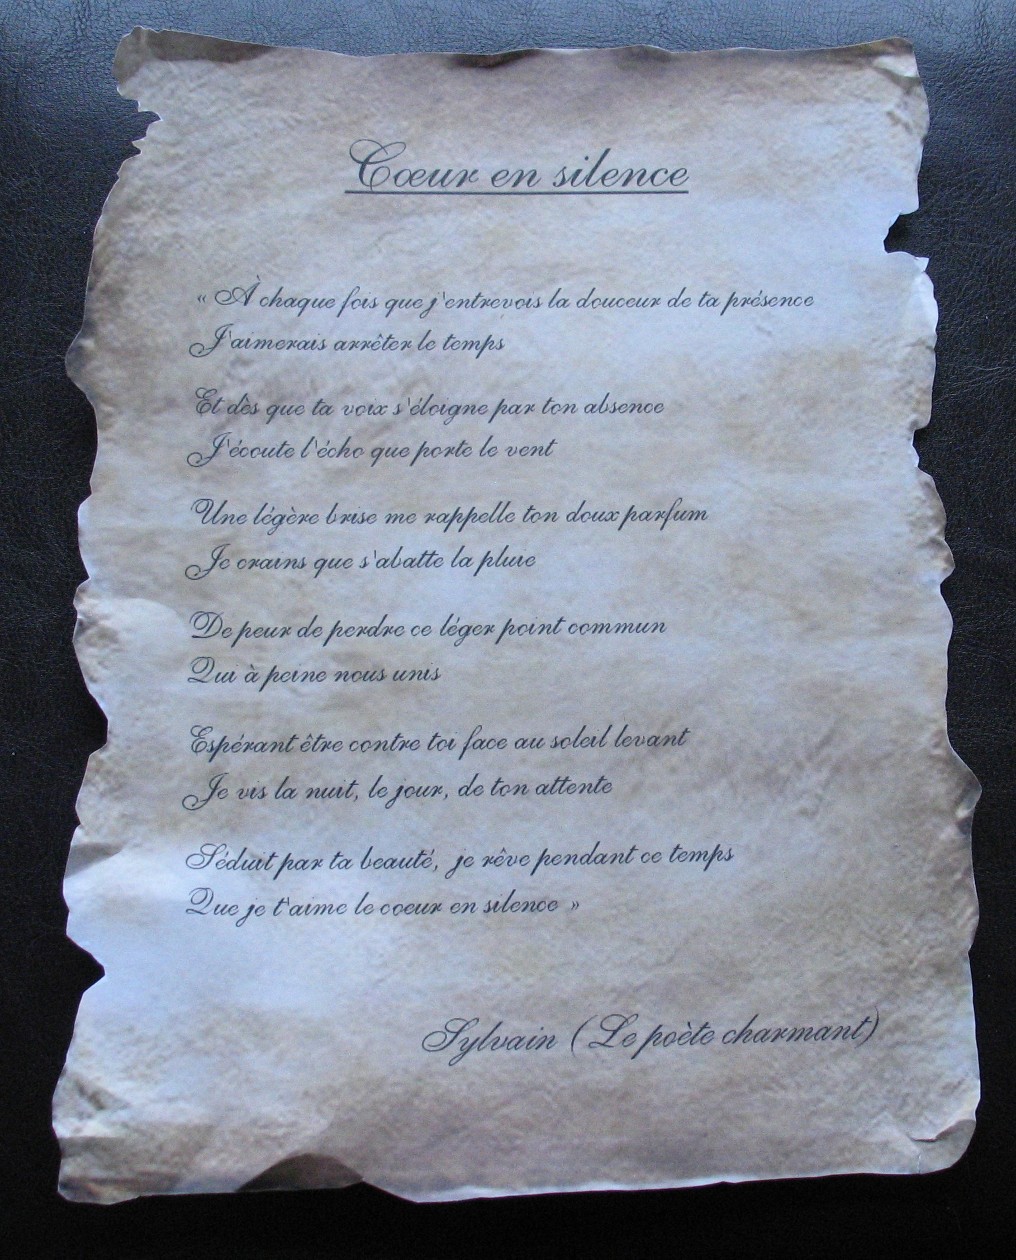 Cœur en silence
« À chaque fois que j'entrevois la douceur de ta présence
J'aimerais arrêter le temps
Et dès que ta voix s'éloigne par ton absence
J'écoute l'écho que porte le vent
Une légère brise me rappelle ton doux parfum
Je crains que s'abatte la pluie
De peur de perdre ce léger point commun
Qui à peine nous unis
Espérant être contre toi face au soleil levant
Je vis la nuit, le jour, de ton attente
Séduit par ta beauté, je rêve pendant ce temps
Que je t'aime le coeur en silence »
Sylvain (Le poète charmant)